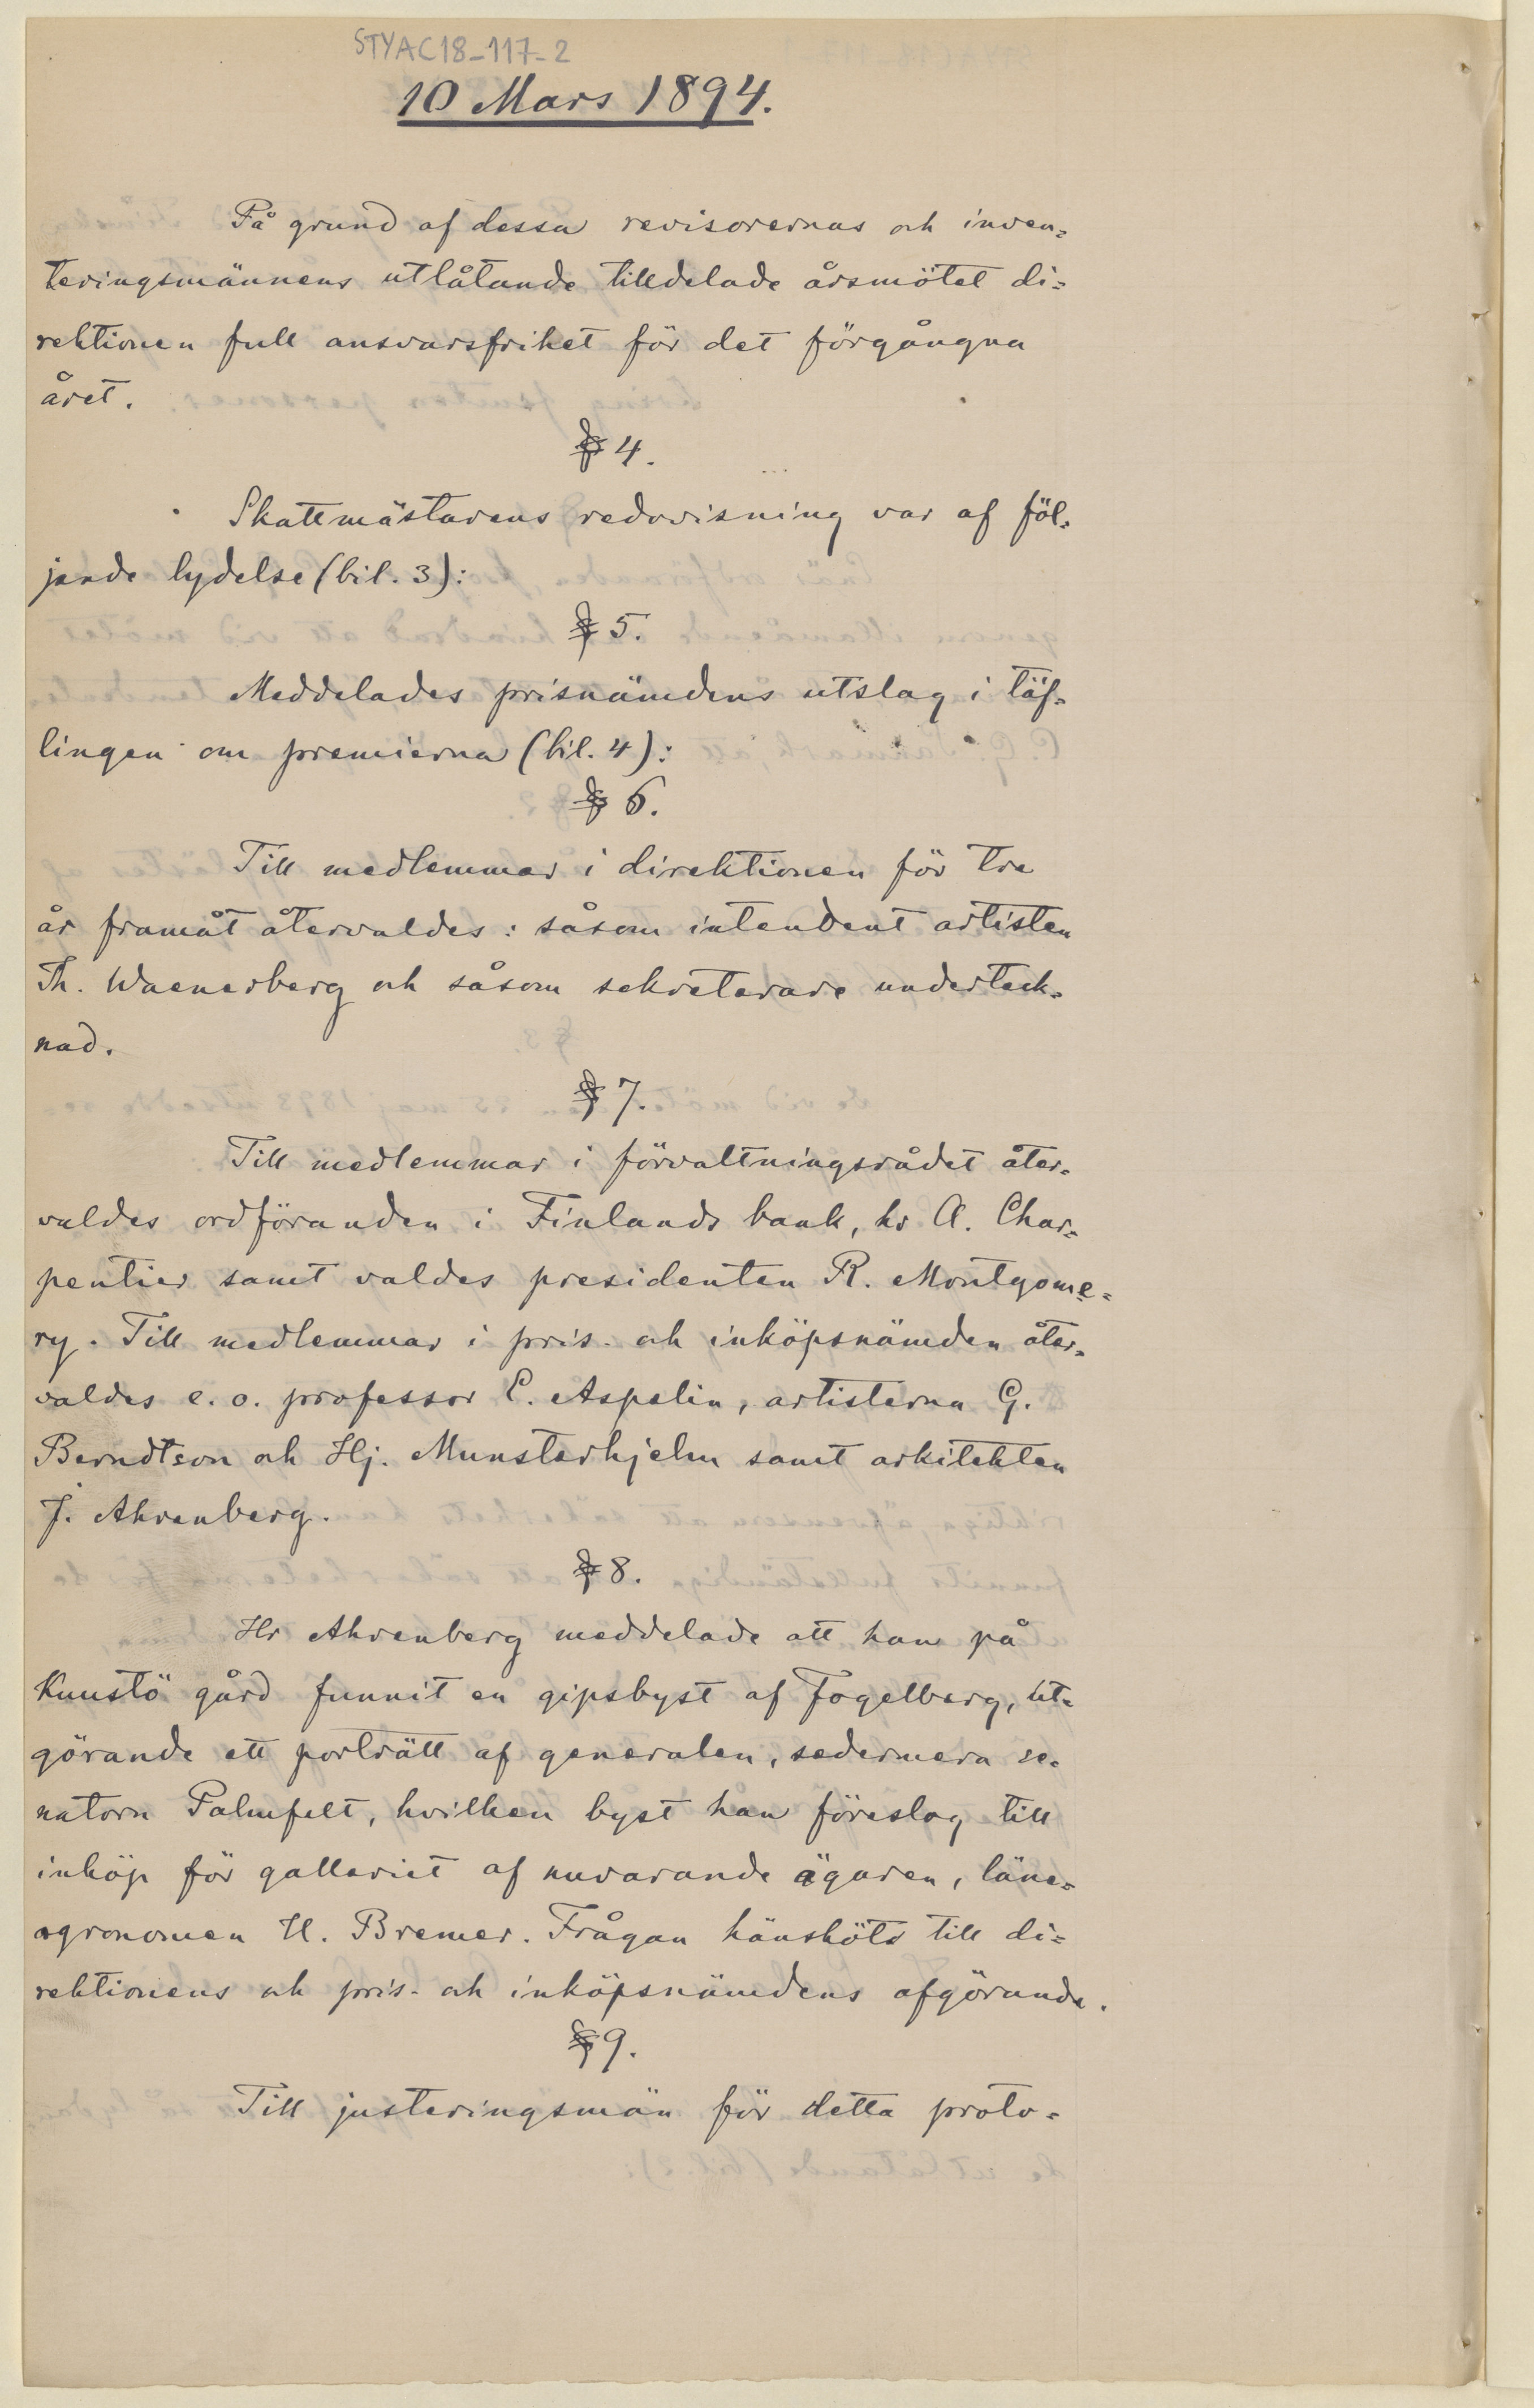 STYAC18-117-2
10 Mars 1894.
På grund af dessa revisorernas och inven=
teringsmännens utlåtande tilldelade årsmötet di=
rektionen full ansvarsfrihet för det förgångna
året.
§ 4.
Skattmästarens redovisning var af föl=
jande lydelse (bil. 3):
§ 5.
Meddelades prisnämdens utslag i täf=
lingen om premierna (bil. 4):
§ 6.
Till medlemmar i direktionen för tre
år framåt återvaldes: såsom intendent artisten
Th. Waenerberg och såsom sekreterare underteck=
nad.
§ 7.
Till medlemmar i förvaltningsrådet åter=
valdes ordföranden i Finlands bank, hr A. Char=
pentier samt valdes presidenten R. Montgome=
ry. Till medlemmar i pris- och inköpsnämden åter=
valdes e. o. professor E. Aspelin, artisterna G.
Berndtson och Hj. Munsterhjelm samt arkitekten
J. Ahrenberg.
§ 8.
Hr Ahrenberg meddelade att han på
Kuustö gård funnit en gipsbyst af Fogelberg, ut=
görande ett porträtt af generalen, sedermera se=
natorn Palmfelt, hvilken byst han föreslog till
inköp för galleriet af nuvarande ägaren, läne=
agronomen H. Bremer. Frågan hänsköts till di=
rektionens och pris- och inköpsnämdens afgörande.
§ 9.
Till justeringsmän för detta proto=